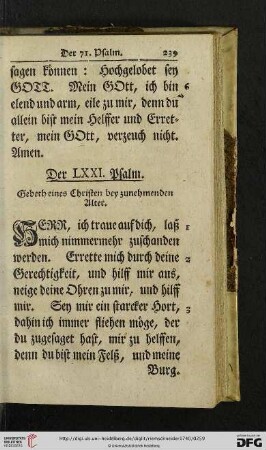 Der 71. Psalm. 239
sagen können: Hochgelobet sey
GOTT. Mein GOtt, ich bin 6
elend und arm, eile zu mir, denn du
allein bist mein Helffer und Erret-
ter, mein GOtt, verzeuch nicht.
Amen.
Der LXXI. Psalm.
Gebeth eines Christen bey zunehmenden
Alter.
HERR, ich traue auf dich, laß 1
mich nimmermehr zuschanden
werden. Errette mich durch deine 2
Gerechtigkeit, und hilff mir aus,
neige deine Ohren zu mir, und hilff
mir. Sey mir ein starcker Hort, 3
dahin ich immer fliehen möge, der
du zugesaget hast, mir zu helffen,
denn du bist mein Felß, und meine
Burg.
UNIVERSITÄTS-
BIBLIOTHEK
HEIDELBERG
© Universitätsbibliothek Heidelberg
gefördert durch die
DFG